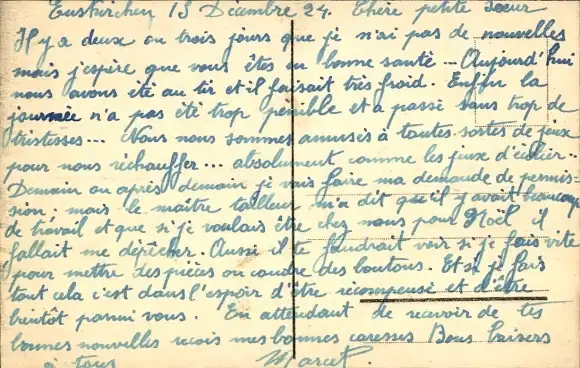 Euskirchen 13 Décembre 24. Chère petite soeur
Il y a deux ou trois jours que je n'ai pas de nouvelles
mais j'espère que vous êtes en bonne santé... Aujourd'hui
nous avons été au tir et il faisait très froid. Enfin la
journée n'a pas été trop pénible et a passé sans trop de
tristesses... Nous nous sommes amusés à toutes sortes de jeux
pour nous réchauffer... absolument comme les jeux d'écolier..
Demain ou après demain je vais faire ma demande de permis-
sion, mais le maître tailleur m'a dit qu'il y avait beaucoup
de travail et que si je voulais être chez nous pour Noël il
fallait me dépêcher. Aussi il te faudrait voir si je fais vite
pour mettre des pièces ou coudre des boutons. Et si je fais
tout cela c'est dans l'espoir d'être récompensé et d'être
bientôt parmi vous. En attendant de recevoir de tes
bonnes nouvelles reçois mes bonnes caresses Bons baisers
à tous Marcel.